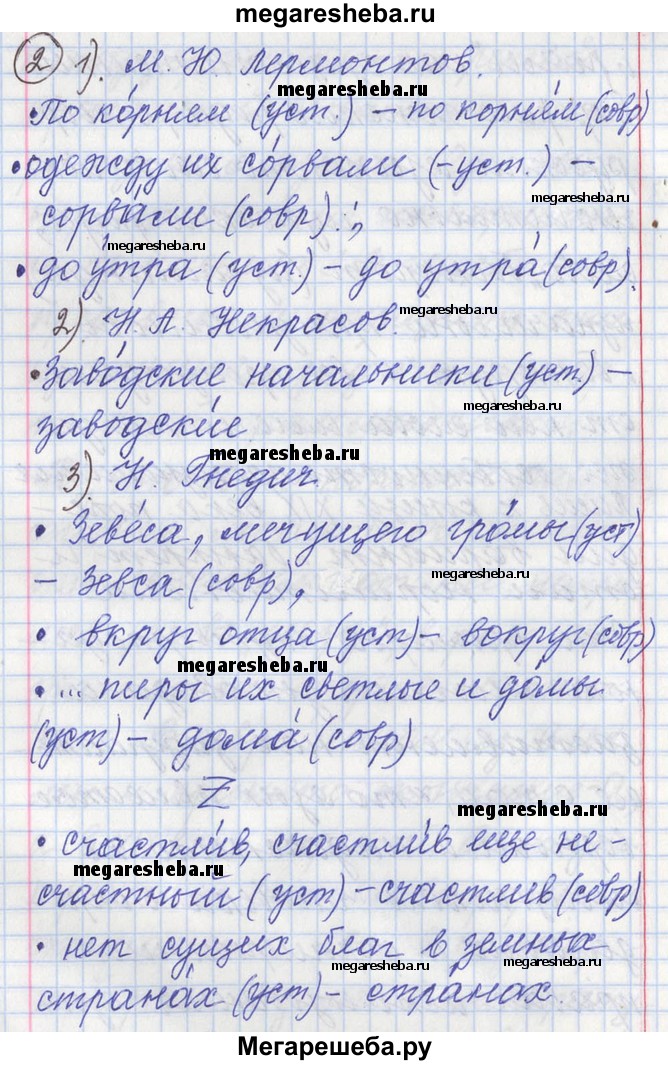 megaresheba.ru
2 1). М. Ю. Лермонтов.
megaresheba.ru
• По ко́рням (уст.) – по корня́м (совр)
• одежду их со́рвали (–уст.) –
megaresheba.ru
сорва́ли (совр).;
megaresheba.ru
• до у́тра (уст.) – до утра́ (совр).
megaresheba.ru
2). Н. А. Некрасов.
• Заво́дские начальники (уст.) –
megaresheba.ru
заводски́е
megaresheba.ru
3). Н. Гнедич.
• Зеве́са, мечущего гро́мы (уст)
megaresheba.ru
– Зевса (совр),
• вкруг отца (уст) – вокруг (совр)
megaresheba.ru
• ... пиры их светлые и до́мы
(уст) – дома́ (совр)
Z
megaresheba.ru
• счастли́в, счастли́в еще не-
megaresheba.ru
счастный (уст) – счастлив (совр)
• нет сущих благ в земных
megaresheba.ru
megaresheba.ru
страна́х (уст) – стра́нах.
Мегарешеба.ру